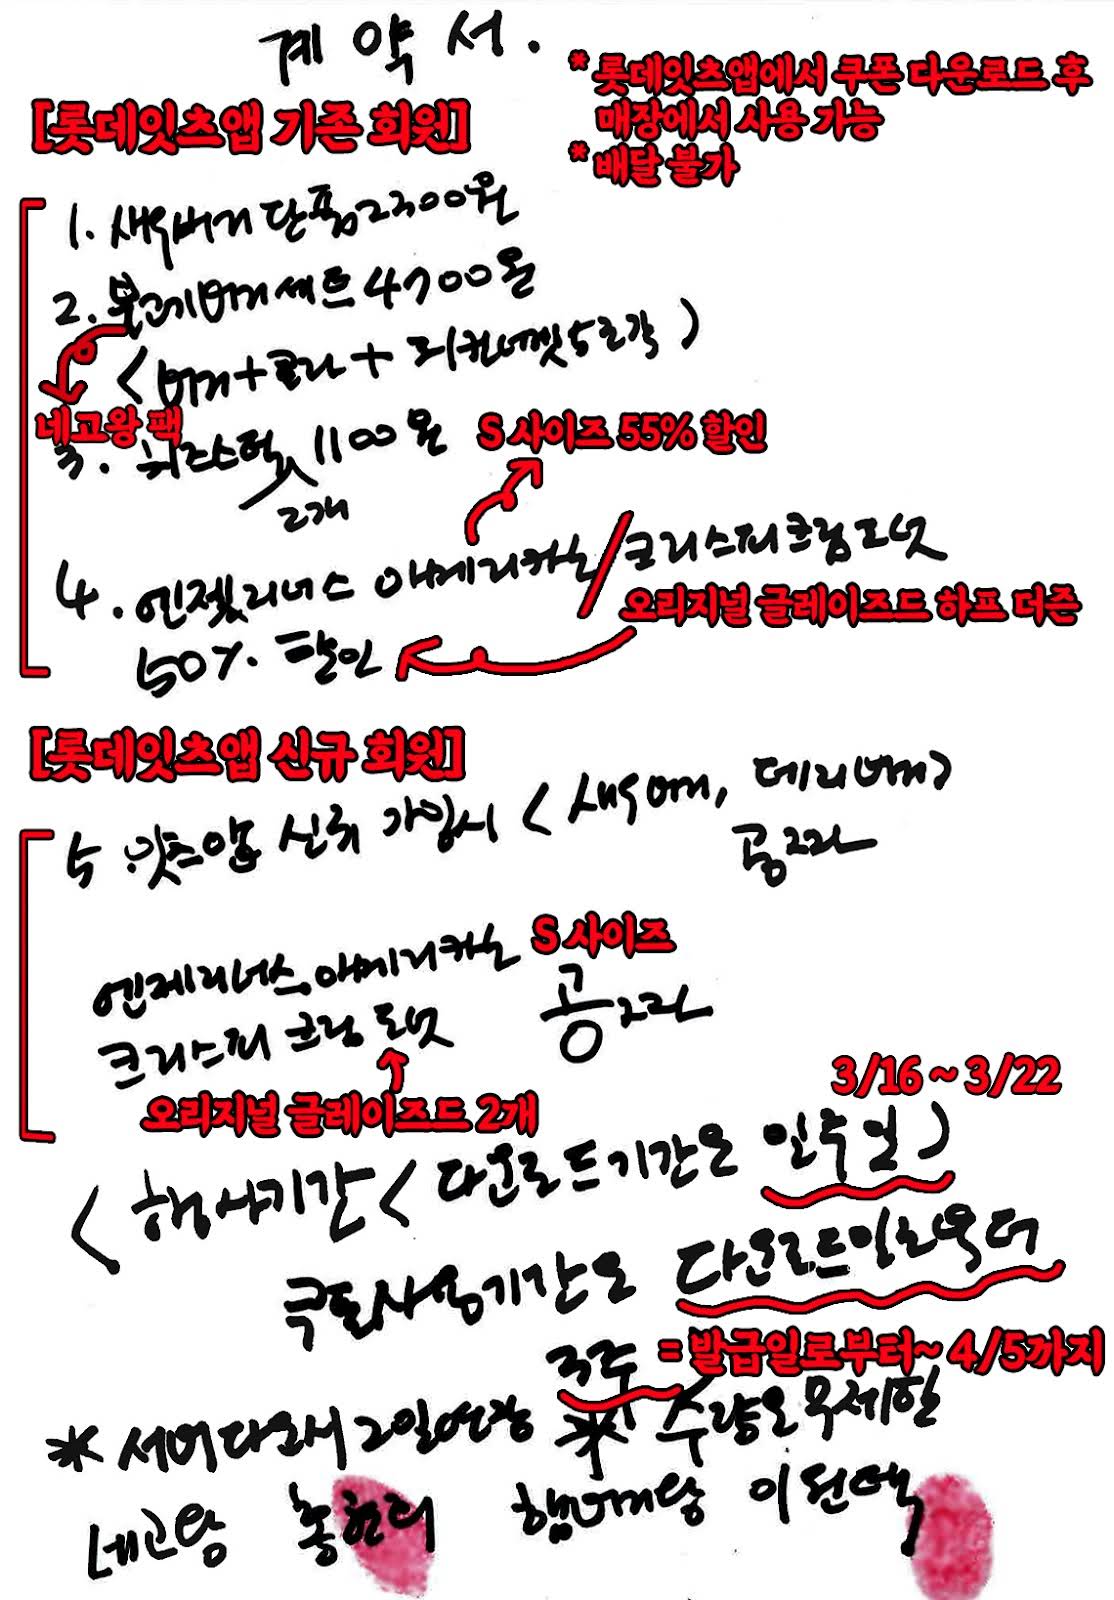 계약서.
* 롯데잇츠앱에서 쿠폰 다운로드 후
매장에서 사용 가능
* 배달 불가
[롯데잇츠앱 기존 회원]
1. 새우버거 단품 2300원
2. 불고기버거세트 4700원
(버거+콜라+치킨너겟 5조각)
네고왕 팩
3. 치즈스틱 1100원
2개
S 사이즈 55% 할인
4. 엔젤리너스 아메리카노/크리스피크림도넛
오리지널 글레이즈드 하프 더즌
50%. 할인
[롯데잇츠앱 신규 회원]
5. 잇츠앱 신규 가입시 <새우버거, 데리버거>
공짜
엔제리너스 아메리카노 S 사이즈
크리스피 크림 도넛 공짜
오리지널 글레이즈드 2개
3/16 ~ 3/22
<행사기간<다운로드기간은 일주일)
쿠폰사용기간은 다운로드일로부터
3주 = 발급일로부터~ 4/5까지
* 서버다운시 2일연장 * 수량은 무제한
네고왕 홍현희 햄버거왕 이원택